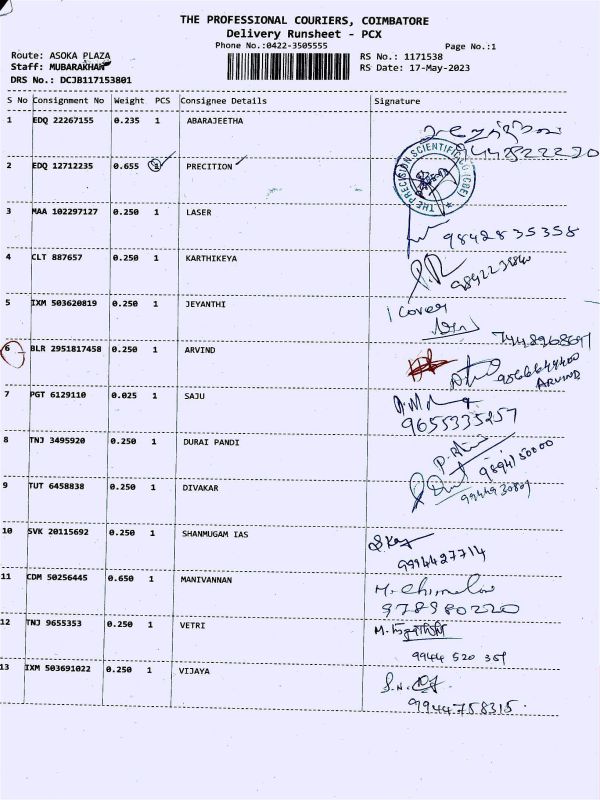 THE PROFESSIONAL COURIERS, COIMBATORE
Delivery Runsheet - PCX
Phone No.:0422-3505555
Page No.:1
Route: ASOKA PLAZA
Staff: MUBARAKHAN
DRS No.: DCJB117153801
RS No.: 1171538
RS Date: 17-May-2023
S No Consignment No Weight PCS Consignee Details Signature
1 EDQ 22267155 0.235 1 ABARAJEETHA
2 EDQ 12712235 0.655 PRECITION
THE PRECISION SCIENTIFIC CO (CBE)
3 MAA 102297127 0.250 1 LASER
9842835358
4 CLT 887657 0.250 1 KARTHIKEYA
5 IXM 503620819 0.250 1 JEYANTHI
1 cover
6 BLR 2951817458 0.250 1 ARVIND
ARVIND
7 PGT 6129110 0.025 1 SAJU
9655335257
8 TNJ 3495920 0.250 1 DURAI PANDI
9894150000
9 TUT 6458838 0.250 1 DIVAKAR
10 SVK 20115692 0.250 1 SHANMUGAM IAS
9994427714
11 CDM 50256445 0.650 1 MANIVANNAN
978980220
12 TNJ 9655353 0.250 1 VETRI
9944 520 361
13 IXM 503691022 0.250 1 VIJAYA
99447 58315.